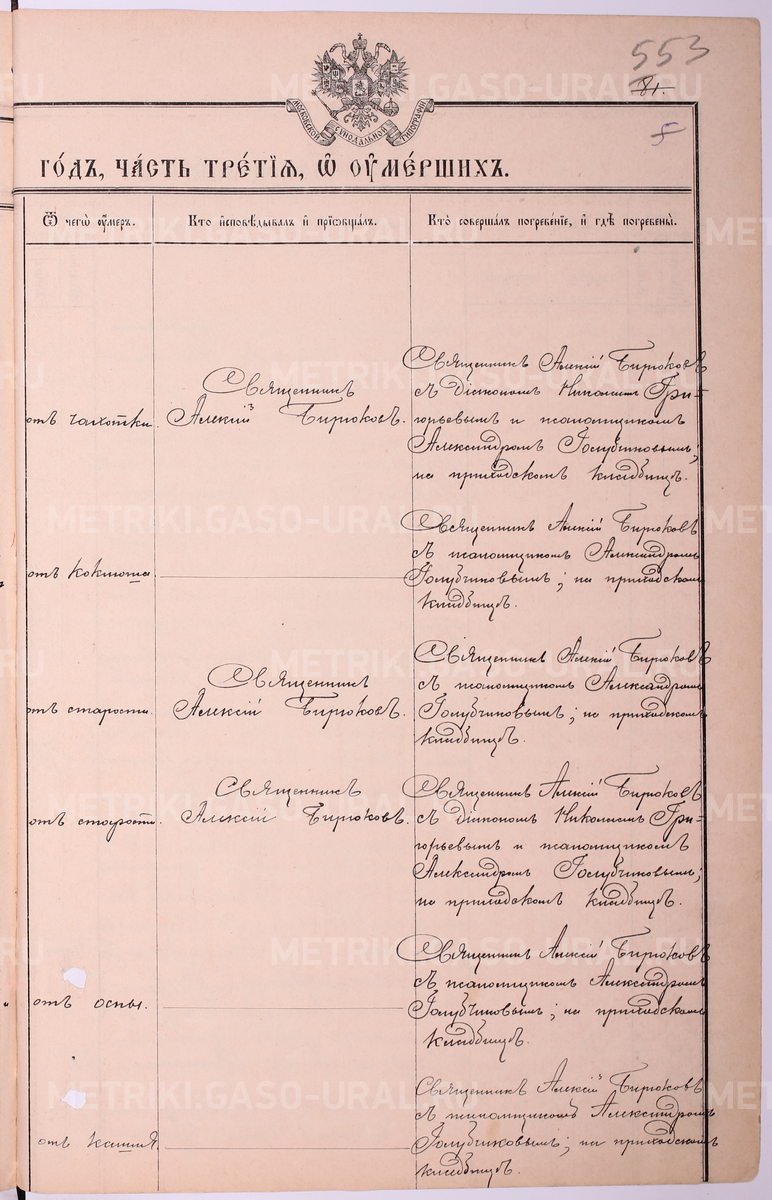 553
81.
МОСКОВСКОЙ СѴНОДАЛЬНОЙ ТИПОГРАФІИ
ГО́ДЪ, ЧА́СТЬ ТРЕ́ТІѦ, Ѡ҆ ОУ҆МЕ́РШИХЪ.
Ѿ чегѡ̀ ᲂу҆́меръ.
Кто̀ и҆сповѣ́дывалъ и҆ прїѡбща́лъ.
Кто̀ соверша́лъ погребе́нїе, и҆ гдѣ̀ погребены̀.
отъ чахотки.
Священникъ
Алексій Бирюковъ.
Священникъ Алексій Бирюковъ
съ діакономъ Николаемъ Гри-
горьевымъ и псаломщикомъ
Александромъ Голубчиковымъ;
на приходскомъ кладбищѣ.
отъ коклюша
Священникъ Алексій Бирюковъ
съ псаломщикомъ Александромъ
Голубчиковымъ; на приходскомъ
кладбищѣ.
отъ старости.
Священникъ
Алексій Бирюковъ.
Священникъ Алексій Бирюковъ
съ псаломщикомъ Александромъ
Голубчиковымъ; на приходскомъ
кладбищѣ.
отъ старости.
Священникъ
Алексій Бирюковъ.
Священникъ Алексій Бирюковъ
съ діакономъ Николаемъ Гри-
горьевымъ и псаломщикомъ
Александромъ Голубчиковымъ;
на приходскомъ кладбищѣ.
отъ оспы.
Священникъ Алексій Бирюковъ
съ псаломщикомъ Александромъ
Голубчиковымъ; на приходскомъ
кладбищѣ.
отъ кашля
Священникъ Алексій Бирюковъ
съ псаломщикомъ Александромъ
Голубчиковымъ; на приходскомъ
кладбищѣ.
METRIKI.GASO-URAL.RU